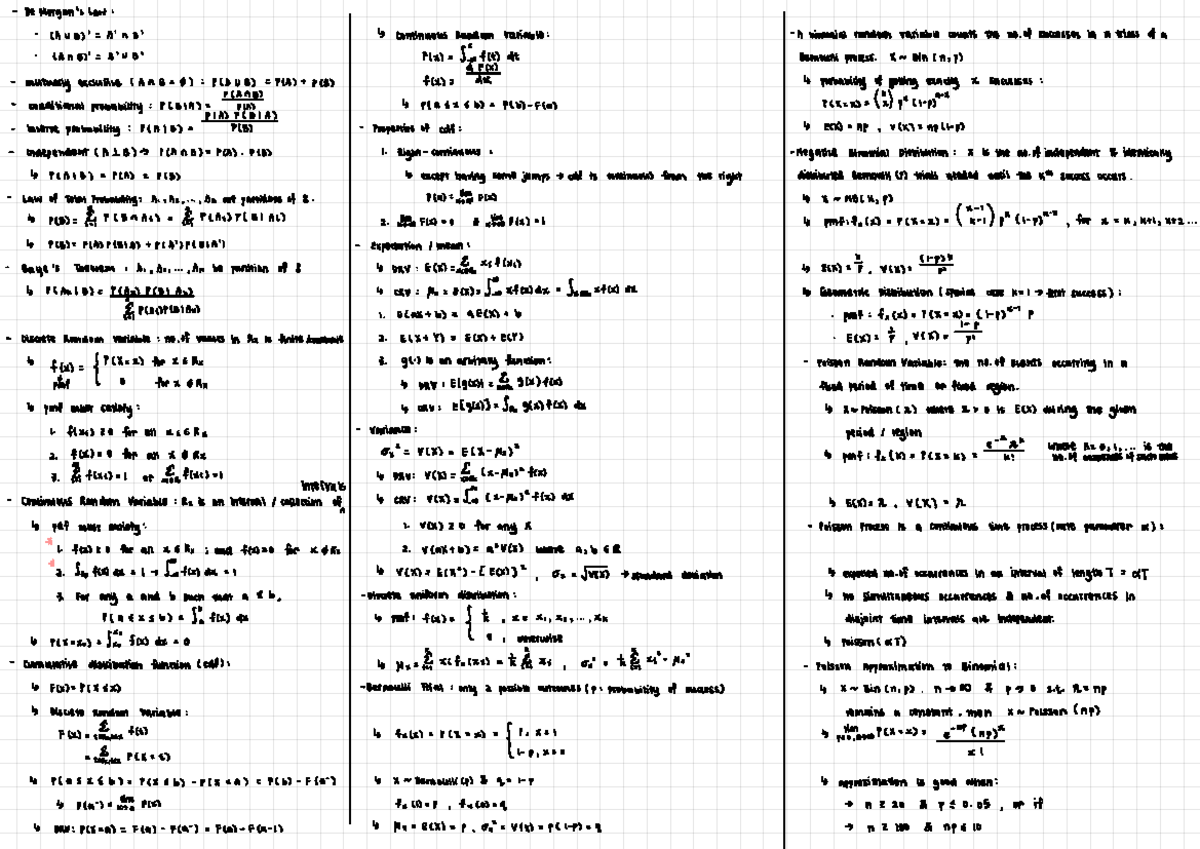 - De Morgan's Law:
· (A ∪ B)' = A' ∩ B'
· (A ∩ B)' = A' ∪ B'
- mutually exclusive (A ∩ B = ∅) : P(A ∪ B) = P(A) + P(B)
- conditional probability : P(B|A) = P(A∩B) / P(A)
- inverse probability : P(A|B) = P(A) P(B|A) / P(B)
- independent (A ⊥ B) → P(A ∩ B) = P(A) · P(B)
↳ P(A|B) = P(A)
- Law of Total Probability: A₁, A₂, ..., Aₙ are partitions of S.
↳ P(B) = Σ P(B ∩ Aᵢ) = Σ P(Aᵢ) P(B|Aᵢ)
↳ P(B) = P(A) P(B|A) + P(A') P(B|A')
- Baye's Theorem : A₁, A₂, ..., Aₙ be partition of S
↳ P(Aₖ|B) = P(Aₖ) P(B|Aₖ) / Σ P(Aᵢ) P(B|Aᵢ)
- Discrete Random Variable : no. of values in Rx is finite/countable
↳ f(x) = { P(X=x) for x ∈ Rx
pmf 0 for x ∉ Rx
↳ pmf must satisfy:
1. f(xᵢ) ≥ 0 for all xᵢ ∈ Rx
2. f(x) = 0 for all x ∉ Rx
3. Σ f(xᵢ) = 1 or Σ f(xᵢ) = 1
- Continuous Random Variable : Rx is an interval / collection of intervals
↳ pdf must satisfy:
1. f(x) ≥ 0 for all x ∈ Rx ; and f(x) = 0 for x ∉ Rx
2. ∫ f(x) dx = 1 → ∫ f(x) dx = 1
3. For any a and b such that a ≤ b,
P(a ≤ x ≤ b) = ∫ f(x) dx
↳ P(X=x₀) = ∫ f(x) dx = 0
- Cumulative distribution function (cdf):
↳ F(x) = P(X ≤ x)
↳ Discrete Random Variable :
F(x) = Σ f(t)
= Σ P(X = t)
↳ P(a ≤ x ≤ b) = P(X ≤ b) - P(X < a) = F(b) - F(a⁻)
↳ F(a⁻) = lim F(x)
↳ DRV: P(X=a) = F(a) - F(a⁻) = F(a) - F(a-1)
↳ Continuous Random Variable:
F(x) = ∫ f(t) dt
f(x) = d F(x) / dx
↳ P(a ≤ x ≤ b) = F(b) - F(a)
- Properties of cdf:
1. Right-continuous :
↳ except having some jumps → cdf is continuous from the right
F(a) = lim F(x)
2. lim F(x) = 0 & lim F(x) = 1
- Expectation / mean :
↳ DRV : E(X) = Σ xᵢ f(xᵢ)
↳ CRV : μx = E(X) = ∫ x f(x) dx = ∫ x f(x) dx
1. E(aX + b) = a E(X) + b
2. E(X + Y) = E(X) + E(Y)
3. g(·) is an arbitrary function:
↳ DRV : E[g(X)] = Σ g(x) f(x)
↳ CRV : E[g(X)] = ∫ g(x) f(x) dx
- Variance:
σx² = V(X) = E(X - μx)²
↳ DRV: V(X) = Σ (x - μx)² f(x)
↳ CRV: V(X) = ∫ (x - μx)² f(x) dx
1. V(X) ≥ 0 for any X
2. V(aX + b) = a² V(X) where a, b ∈ R
↳ V(X) = E(X²) - [E(X)]² , σx = √V(X) → standard deviation
- Discrete uniform distribution :
↳ pmf: f(x) = { 1/k , x = x₁, x₂, ..., xₖ
0 , otherwise
↳ μx = Σ xᵢ fx(xᵢ) = 1/k Σ xᵢ , σx² = 1/k Σ xᵢ² - μx²
- Bernoulli Trial : only 2 possible outcomes (p : probability of success)
↳ fx(x) = P(X = x) = { p, x = 1
1-p, x = 0
↳ X ~ Bernoulli (p) & q = 1-p
fx(1) = p , fx(0) = q
↳ μx = E(X) = p , σx² = V(X) = p(1-p) = q
- A binomial random variable counts the no. of successes in n trials of a
Bernoulli process. X ~ Bin (n, p)
↳ probability of getting exactly x successes :
P(X=x) = (n x) pˣ (1-p)ⁿ⁻ˣ
↳ E(X) = np , V(X) = np(1-p)
- Negative Binomial Distribution : X is the no. of independent & identically
distributed Bernoulli (p) trials needed until the kᵗʰ success occurs.
↳ X ~ NB(k, p)
↳ pmf: fx(x) = P(X = x) = (x-1 k-1) pᵏ (1-p)ˣ⁻ᵏ , for x = k, k+1, k+2 ...
↳ E(X) = k/p , V(X) = (1-p)k / p²
↳ Geometric Distribution (special case k=1 → first success) :
· pmf : fx(x) = P(X = x) = (1-p)ˣ⁻¹ p
· E(X) = 1/p , V(X) = 1-p / p²
- Poisson Random Variable: the no. of events occurring in a
fixed period of time or fixed region.
↳ X ~ Poisson (λ) where λ > 0 is E(X) during the given
period / region
↳ pmf : fx(k) = P(X = k) = e^-λ λᵏ / k! where k = 0, 1, ... is the no. of occurrences of such event
↳ E(X) = λ , V(X) = λ
- Poisson Process is a continuous time process (rate parameter α) :
↳ expected no. of occurrences in an interval of length T = αT
↳ no simultaneous occurrences & no. of occurrences in
disjoint time intervals are independent.
↳ Poisson (αT)
- Poisson Approximation to Binomial :
↳ X ~ Bin (n, p) . n → ∞ & p → 0 s.t. λ = np
remains a constant , then X ~ Poisson (np)
↳ lim P(X=x) = e^-np (np)ˣ / x!
↳ approximation is good when:
→ n ≥ 20 & p ≤ 0.05 , or if
→ n ≥ 100 & np ≤ 10